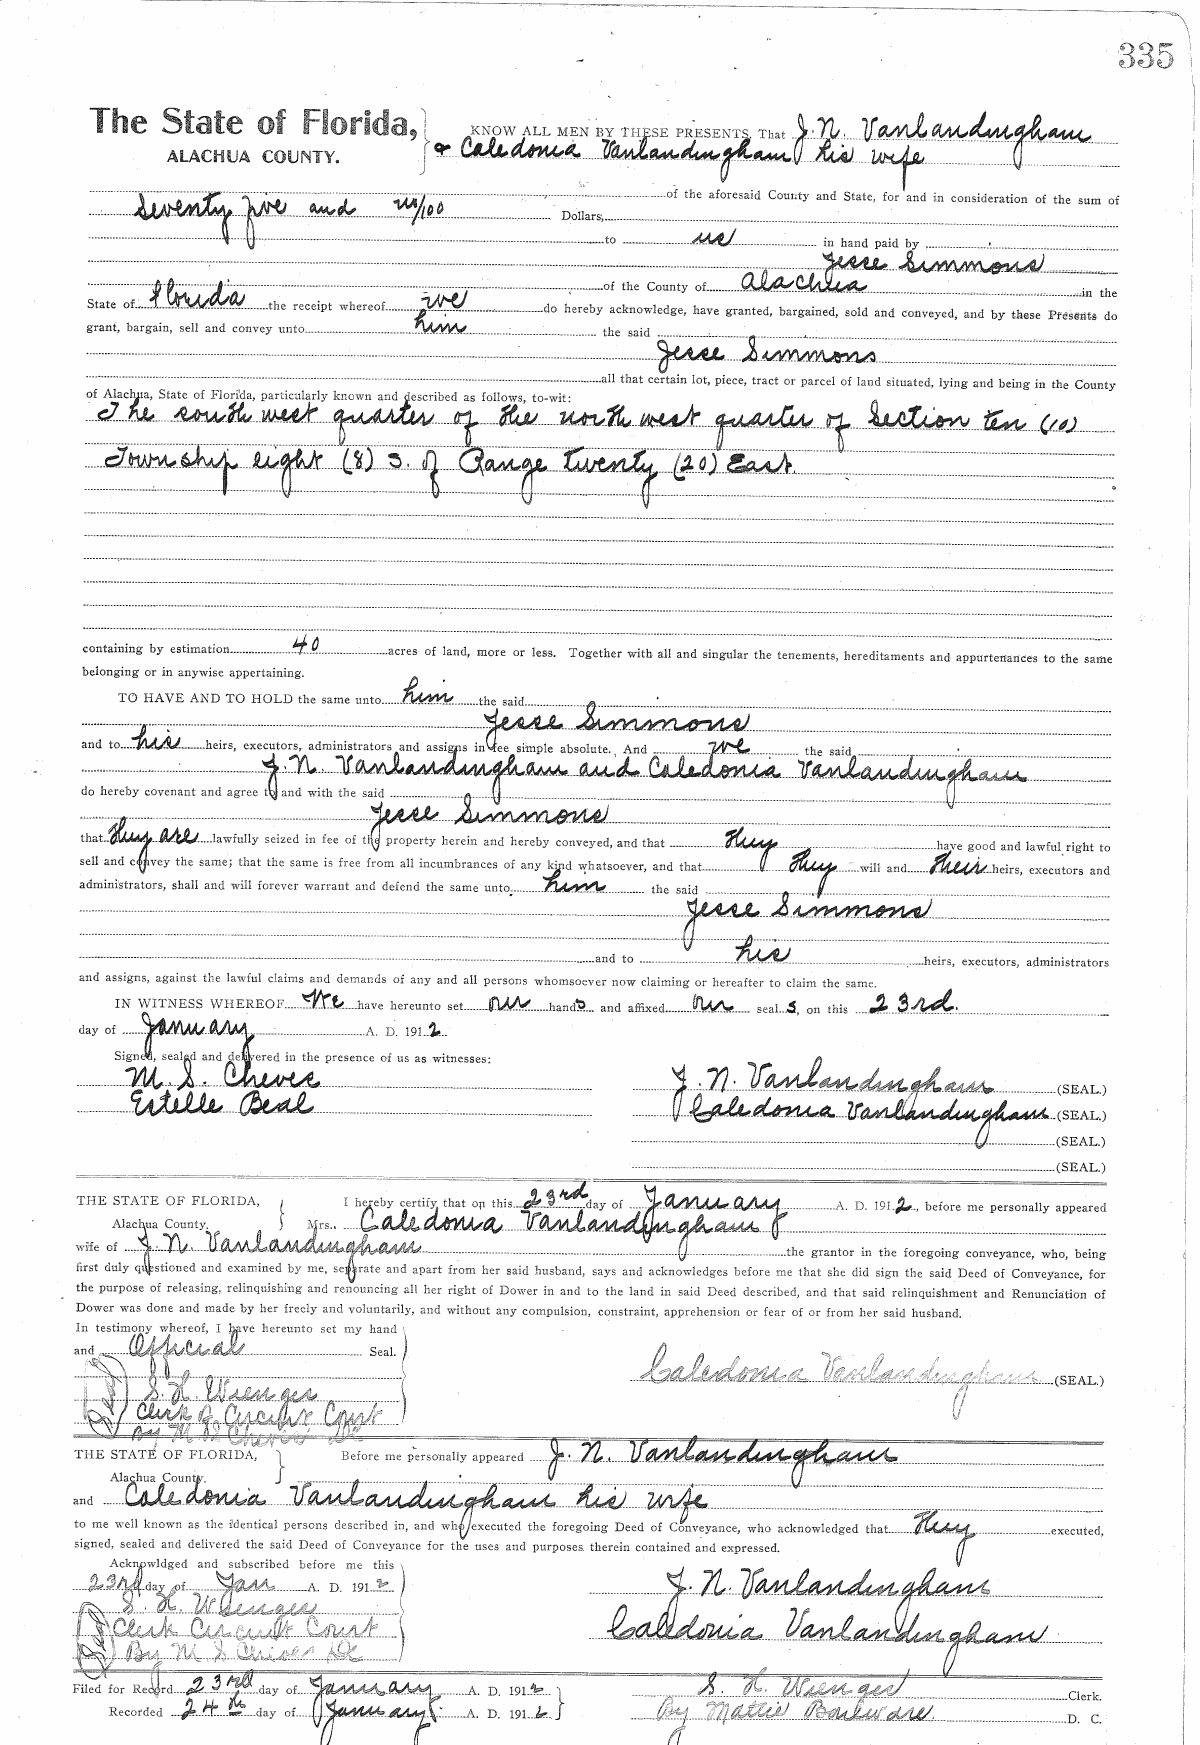 335
The State of Florida, KNOW ALL MEN BY THESE PRESENTS, That J. N. Vanlandingham
ALACHUA COUNTY. & Caledonia Vanlandingham his wife
of the aforesaid County and State, for and in consideration of the sum of
Seventy five and no/100 Dollars,
to us in hand paid by
Jesse Simmons
of the County of Alachua in the
State of Florida the receipt whereof we do hereby acknowledge, have granted, bargained, sold and conveyed, and by these Presents do
grant, bargain, sell and convey unto him the said
Jesse Simmons
all that certain lot, piece, tract or parcel of land situated, lying and being in the County
of Alachua, State of Florida, particularly known and described as follows, to-wit:
The south west quarter of the north west quarter of Section ten (10)
Township eight (8) S. of Range twenty (20) East.
containing by estimation 40 acres of land, more or less. Together with all and singular the tenements, hereditaments and appurtenances to the same
belonging or in anywise appertaining.
TO HAVE AND TO HOLD the same unto him the said
Jesse Simmons
and to his heirs, executors, administrators and assigns in fee simple absolute. And we the said
J. N. Vanlandingham and Caledonia Vanlandingham
do hereby covenant and agree to and with the said
Jesse Simmons
that they are lawfully seized in fee of the property herein and hereby conveyed, and that they have good and lawful right to
sell and convey the same; that the same is free from all incumbrances of any kind whatsoever, and that they will and their heirs, executors and
administrators, shall and will forever warrant and defend the same unto him the said
Jesse Simmons
and to his heirs, executors, administrators
and assigns, against the lawful claims and demands of any and all persons whomsoever now claiming or hereafter to claim the same.
IN WITNESS WHEREOF We have hereunto set our hands and affixed our seal s, on this 23rd.
day of January A. D. 1912
Signed, sealed and delivered in the presence of us as witnesses:
M. S. Cheves J. N. Vanlandingham (SEAL.)
Estelle Beal Caledonia Vanlandingham (SEAL.)
(SEAL.)
(SEAL.)
THE STATE OF FLORIDA, I hereby certify that on this 23rd day of January A. D. 1912, before me personally appeared
Alachua County. Mrs. Caledonia Vanlandingham
wife of J. N. Vanlandingham the grantor in the foregoing conveyance, who, being
first duly questioned and examined by me, separate and apart from her said husband, says and acknowledges before me that she did sign the said Deed of Conveyance, for
the purpose of releasing, relinquishing and renouncing all her right of Dower in and to the land in said Deed described, and that said relinquishment and Renunciation of
Dower was done and made by her freely and voluntarily, and without any compulsion, constraint, apprehension or fear of or from her said husband.
In testimony whereof, I have hereunto set my hand
and Official Seal.
Caledonia Vanlandingham (SEAL.)
S. H. Wienges
Clerk of Circuit Court
By M. S. Cheves DC
THE STATE OF FLORIDA, Before me personally appeared J. N. Vanlandingham
Alachua County.
and Caledonia Vanlandingham his wife
to me well known as the identical persons described in, and who executed the foregoing Deed of Conveyance, who acknowledged that they executed,
signed, sealed and delivered the said Deed of Conveyance for the uses and purposes therein contained and expressed.
Acknowldged and subscribed before me this
23rd day of Jan A. D. 1912 J. N. Vanlandingham
S. H. Wienges
Clerk Circuit Court Caledonia Vanlandingham
By M S Cheves DC
Filed for Record 23rd day of January A. D. 1912 S. H. Wienges Clerk.
Recorded 24th day of January A. D. 1912 By Mattie D. C.